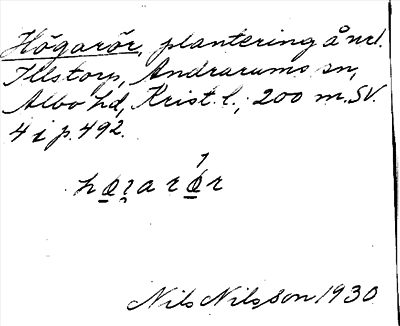 Högarör, plantering å nr 1.
Illstorp, Andrarums sn,
Albo hd, Krist. l., 200 m. SV.
4 i p. 492.
høȥarǿr
Nils Nilsson 1930